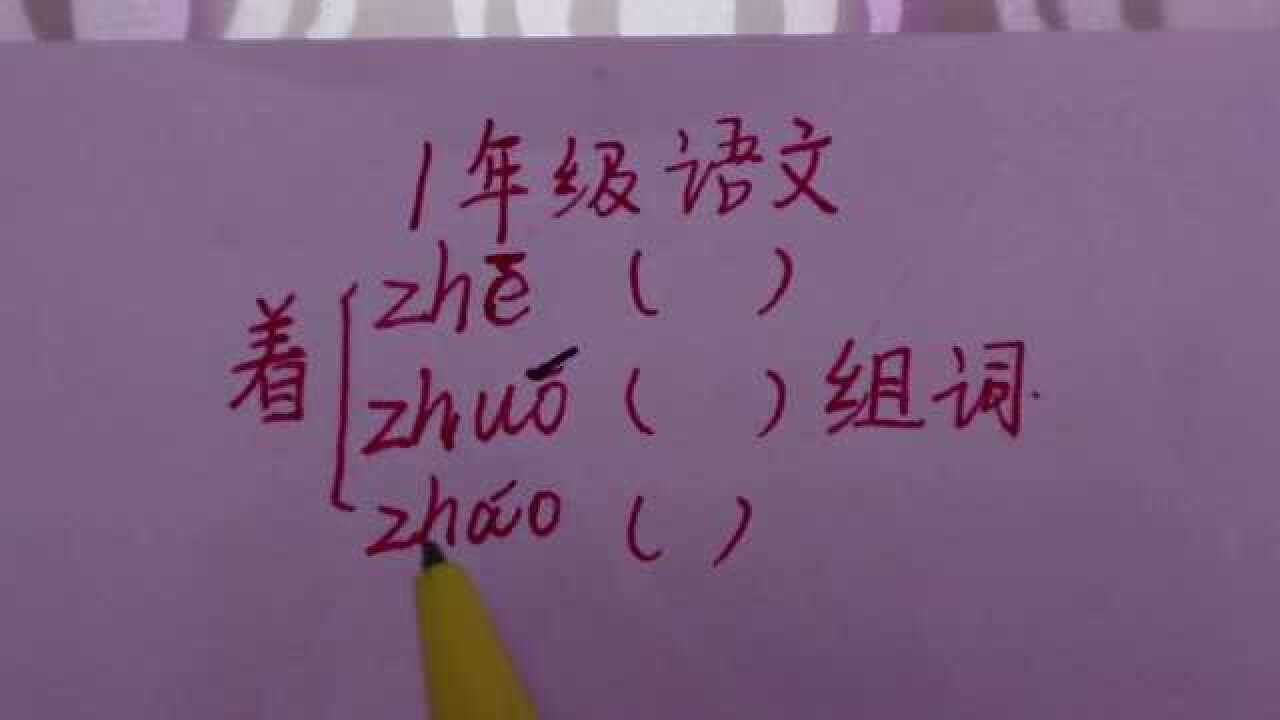 1年级语文
着 zhē ( )
zhuó ( ) 组词.
zháo ( )